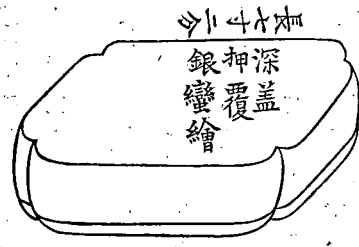 長七寸二分
深盖
押覆
銀蠻繪